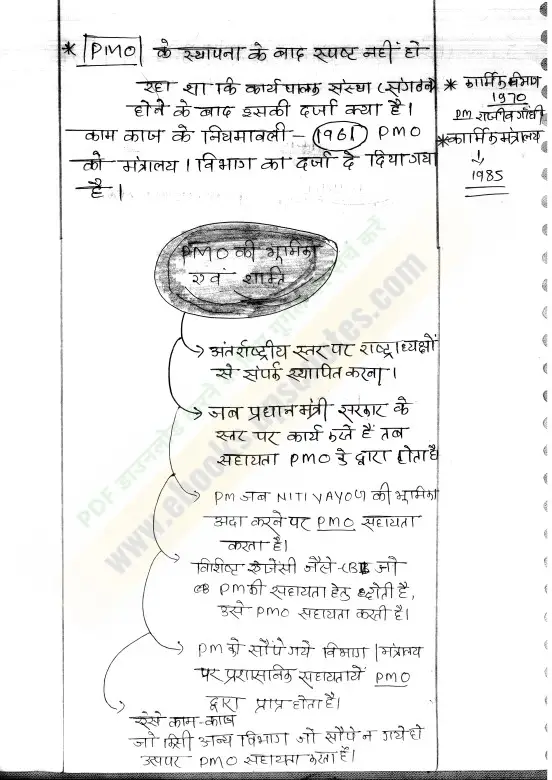 * PMO के स्थापना के बाद स्पष्ट नहीं हो
रहा था कि कार्य पालक संस्था (संगठन)
होने के बाद इसकी दर्जा क्या है।
काम काज के नियमावली - 1961 PMO
को मंत्रालय । विभाग का दर्जा दे दिया गया
है।
* कार्मिक विभाग
1970
PM राजीव गाँधी
* कार्मिक मंत्रालय
1985
PMO की भूमिका
एवं शक्ति
अंतर्राष्ट्रीय स्तर पर राष्ट्राध्यक्षों
से संपर्क स्थापित करना।
जब प्रधानमंत्री सरकार के
स्तर पर कार्य करते हैं तब
सहायता PMO के द्वारा होता है
PM जब NITI AYOG की भूमिका
अदा करने पर PMO सहायता
करता है।
विशिष्ट एजेंसी जैसे-CBI जो
PM की सहायता हेतु होती है,
उसे PMO सहायता करती है।
PM को सौंपे गये विभाग / मंत्रालय
पर प्रशासनिक सहायतायें PMO
द्वारा प्राप्त होता है।
ऐसे काम-काज
जो किसी अन्य विभाग को सौंपे न गये हो
उसपर PMO सहायता करता है।
PDF डाउनलोड करने के लिए गूगल पर सर्च करें
www.ebooks.upscnotes.com